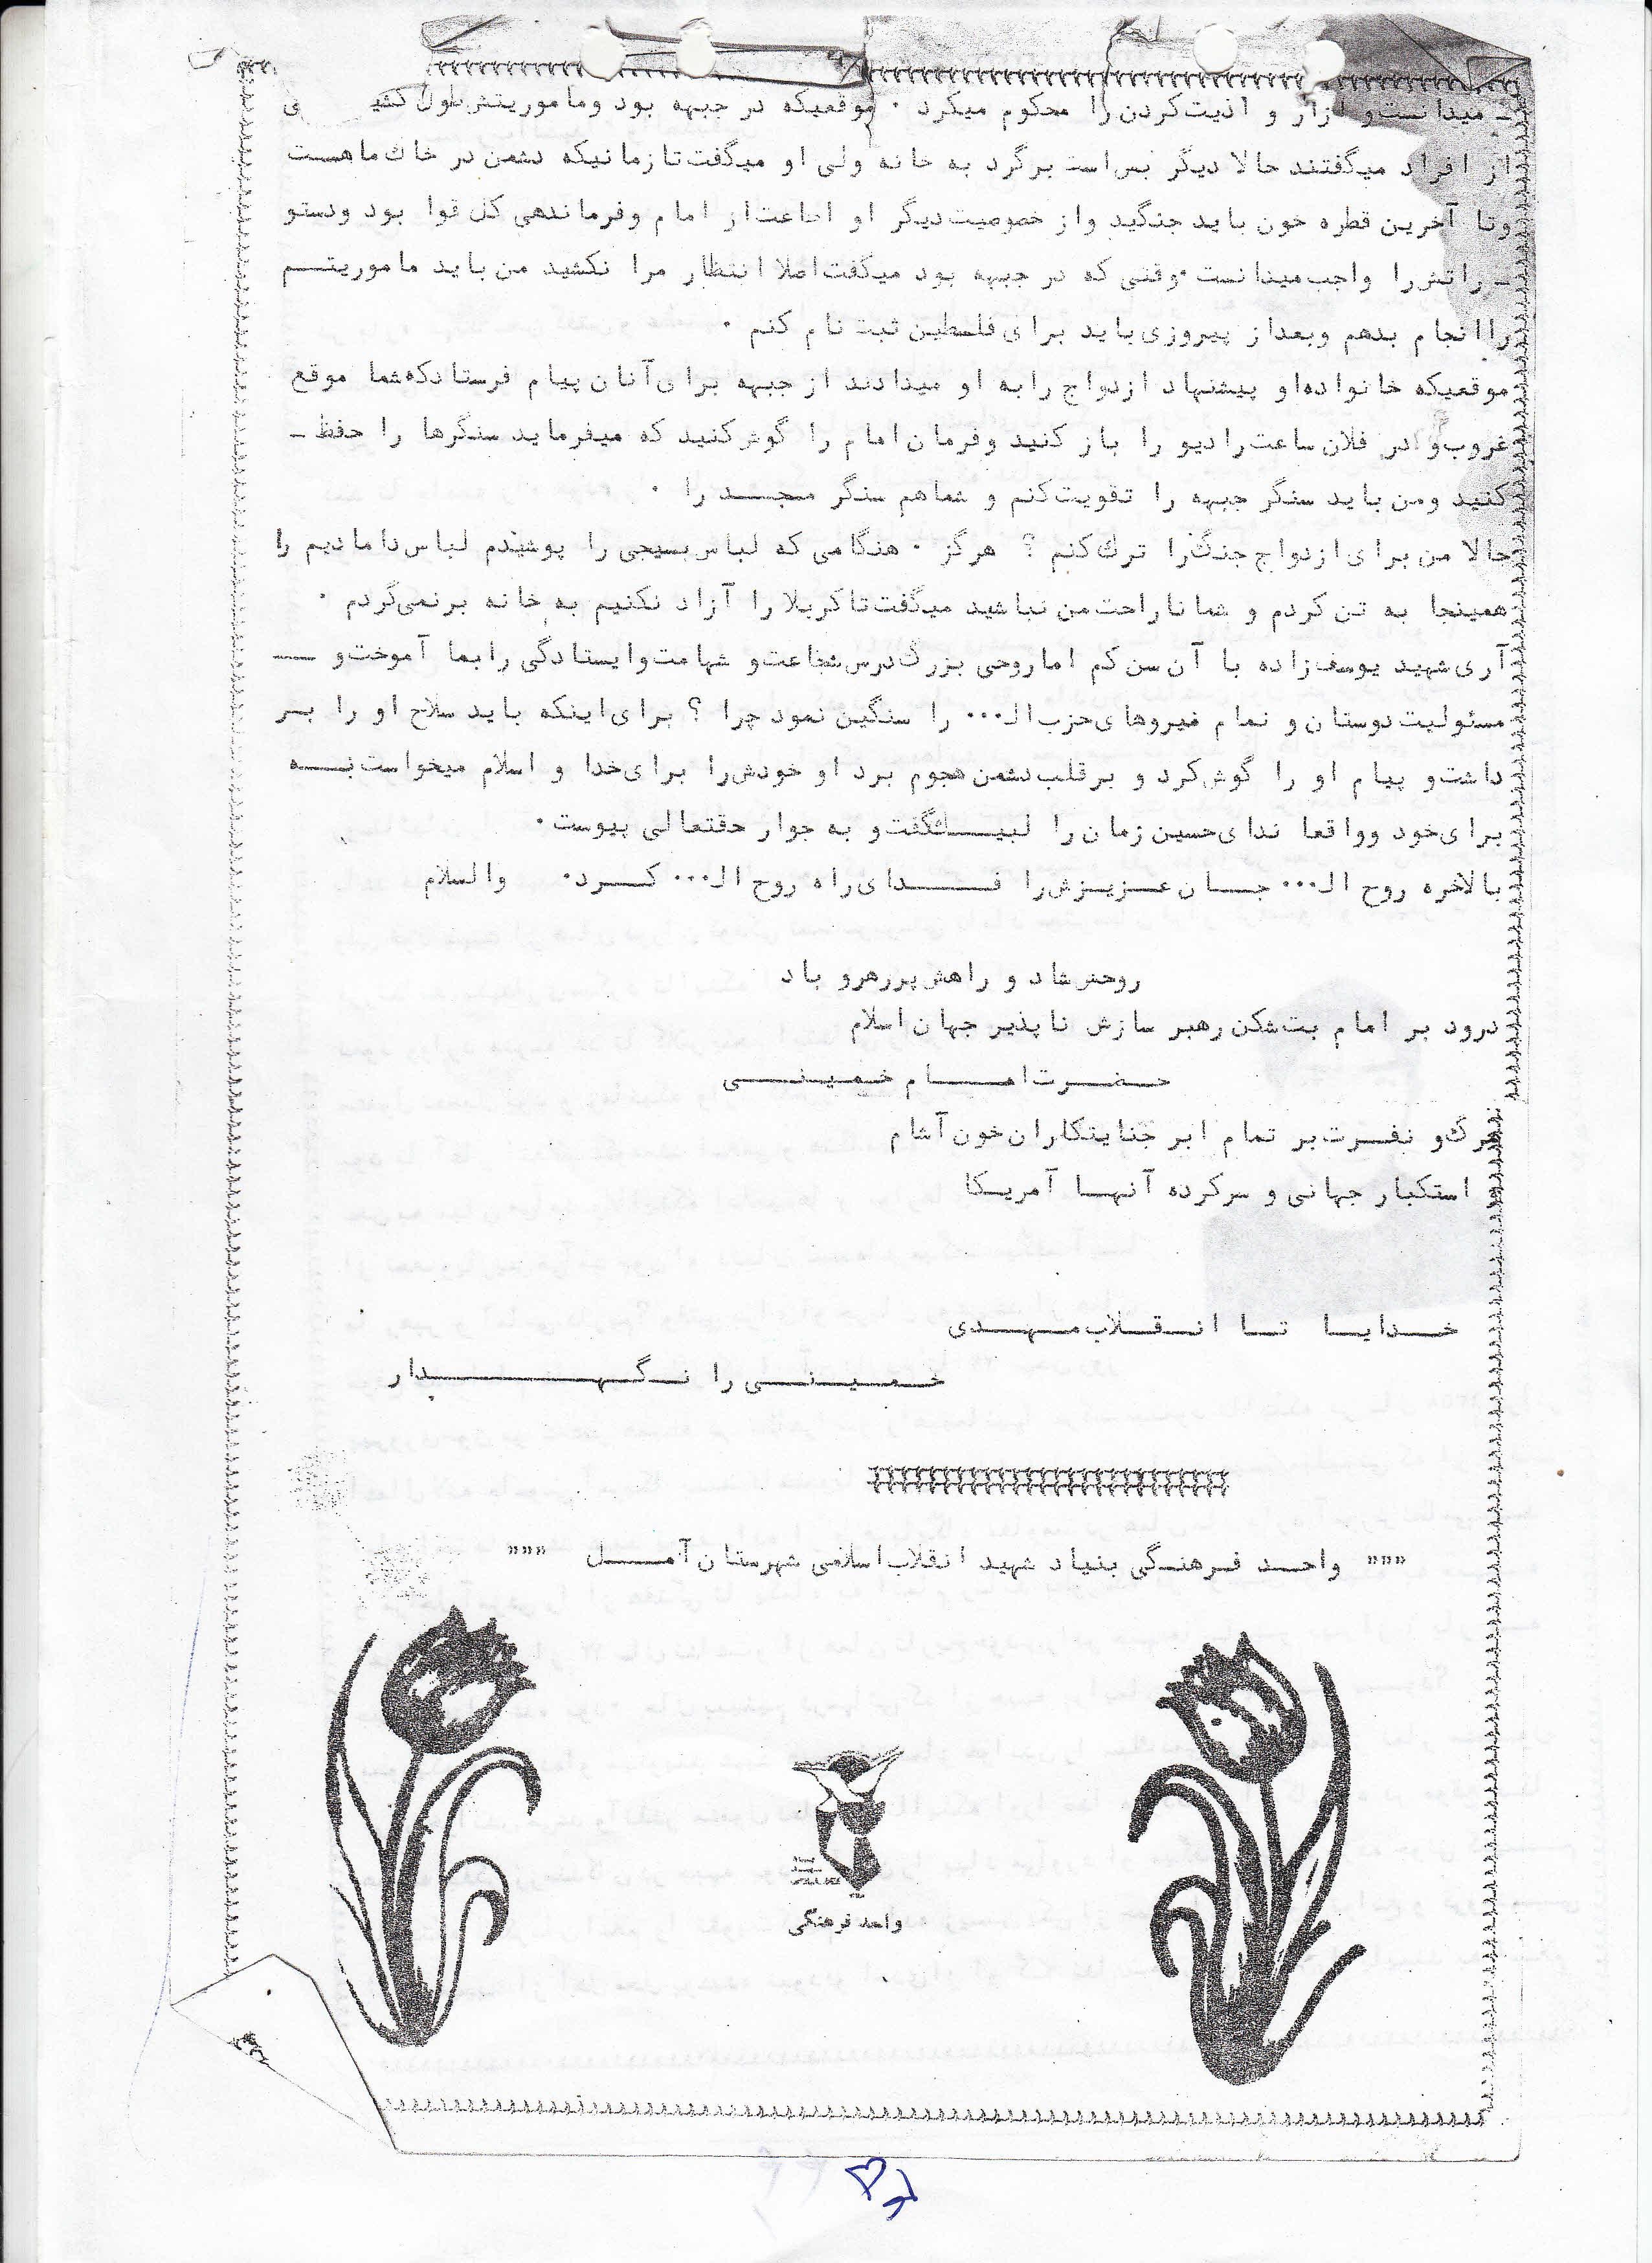 ـ میدانست و آزار و اذیت کردن را محکوم میکرد . موقعیکه در جبهه بود و ماموریتش طول کشید
از افراد میگفتند حالا دیگر بس است برگرد به خانه ولی او میگفت تا زمانیکه دشمن در خاک ما هست
وتا آخرین قطره خون باید جنگید واز خصوصیت دیگر او اطاعت از امام وفرماندهی کل قوا بود ودستو
ـ راتش را واجب میدانست . وقتی که در جبهه بود میگفت اصلا انتظار مرا نکشید من باید ماموریتــم
را انجام بدهم وبعد از پیروزی باید برای فلسطین ثبت نام کنم .
موقعیکه خانواده او پیشنهاد ازدواج را به او میدادند از جبهه برای آنان پیام فرستاد که شما موقع
غروب و در فلان ساعت رادیو را باز کنید وفرمان امام را گوش کنید که میفرماید سنگرها را حفظ ـ
کنید ومن باید سنگر جبهه را تقویت کنم و شما هم سنگر مـجـــد را .
حالا من برای ازدواج جنگ را ترک کنم ؟ هرگز . هنگامی که لباس بسیجی را پوشیدم لباس دامادیم را
همینجا به تن کردم و شما ناراحت من نباشید میگفت تا کربلا را آزاد نکنیم به خانه برنمی گردم .
آری شهید یوسف زاده با آن سن کم اما روحی بزرگ درس شجاعت و شهامت و ایستادگی را بما آموخت و ــ
مسئولیت دوستان و تمام نیروهای حزب الـ... را سنگین نمود چرا ؟ برای اینکه باید سلاح او را بـر
داشت و پیام او را گوش کرد و بر قلب دشمن هجوم برد او خودش را برای خدا و اسلام میخواست بــه
برای خود وواقعا ندای حسین زمان را لبیــــک گفت و به جوار حقتعالی پیوست .
بالاخره روح الـ... جــان عــزیــزش را فــــدای راه روح الـ... کــرد. والسلام
روحش شاد و راهش پررهرو باد
درود بر امام بت شکن رهبر سازش ناپذیر جهان اسلام
حــضــرت امــــام خـمـیـنـــی
مرگ و نفــرت بر تمام ابر جنایتکاران خون آشام
استکبار جهانی و سرکرده آنهــا آمریــکا
خــدایــا تــا انــقــلاب مــهــدی
خــمــیــنــی را نــگــهـــــدار
""" واحــد فــرهنــگی بنیاد شهید انقلاب اسلامی شهرستان آمـــل """
واحد فرهنگی